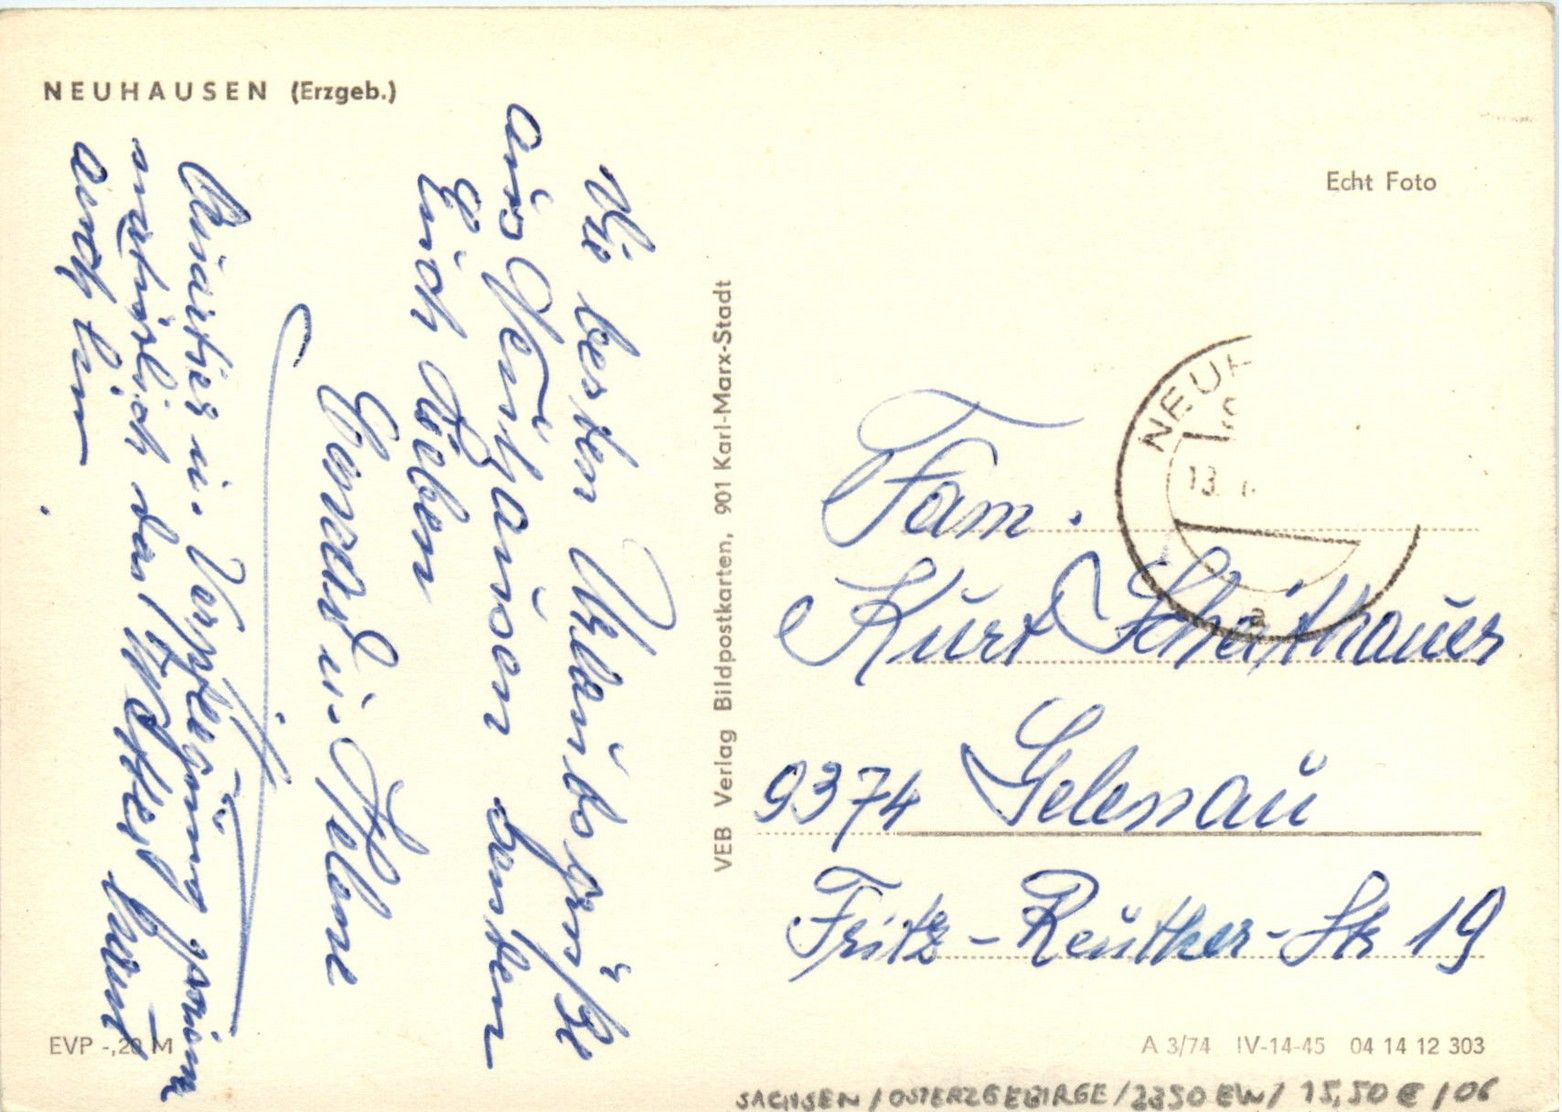 NEUHAUSEN (Erzgeb.)
Die besten Urlaubsgrüße
aus Neuhausen senden
Euch Lieben
u. Helene
Quartier u. Verpflegung prima
natürlich das Wetter haut
auch hin
VEB Verlag Bildpostkarten, 901 Karl-Marx-Stadt
Echt Foto
NEUH
13.
a
Fam.
Kurt Scheithauer
9374 Gelenau
Fritz-Reuther-Str 19
EVP -,20 M
A 3/74 IV-14-45 04 14 12 303
SACHSEN/OSTERZGEBIRGE/3350 EW/ 15,50 € /06